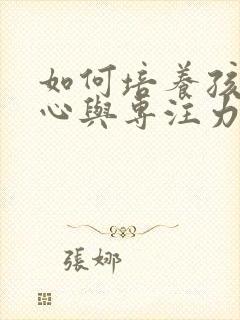 如何培養孩
心與專注力
張娜